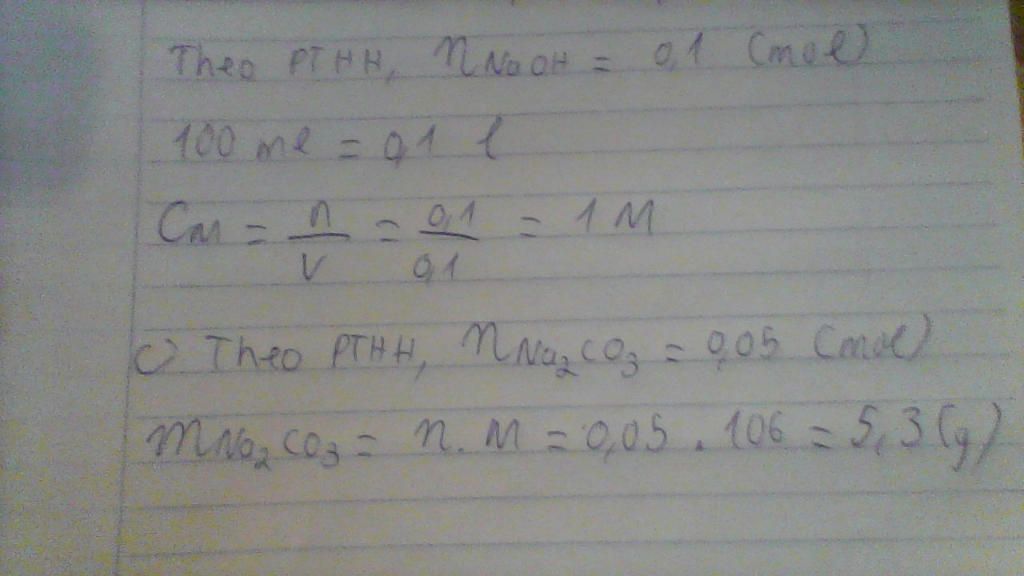 Theo PTHH, nNaOH = 0,1 (mol)
100 ml = 0,1 l
CM = n/V = 0,1/0,1 = 1 M
c) Theo PTHH, nNa₂CO₃ = 0,05 (mol)
mNa₂CO₃ = n. M = 0,05 . 106 = 5,3 (g)